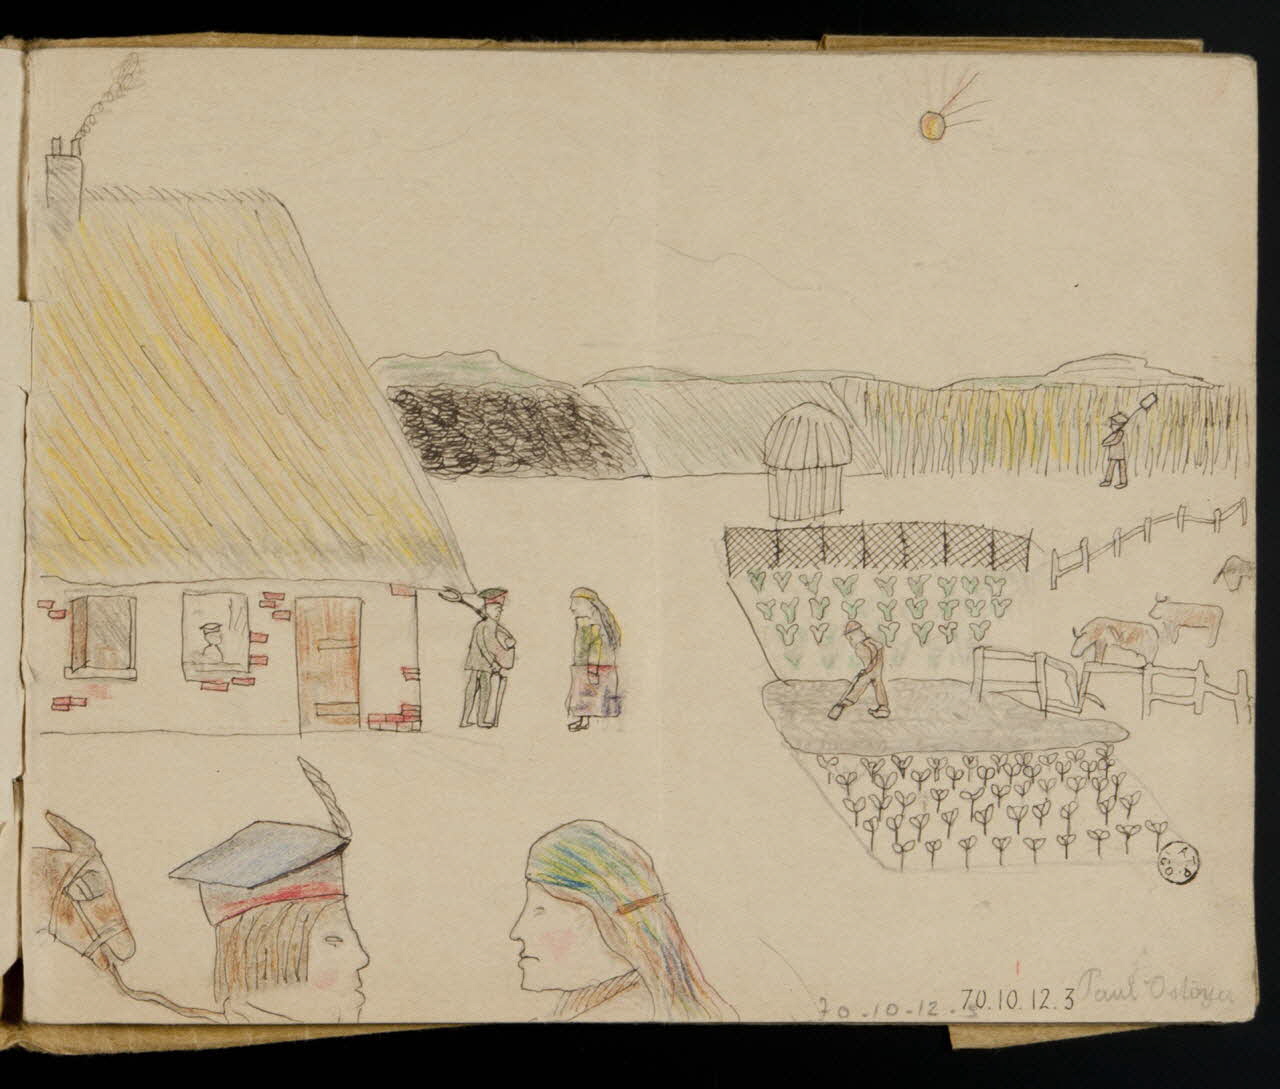 70.10.12.3
70.10.12.3 Paul Ostoya